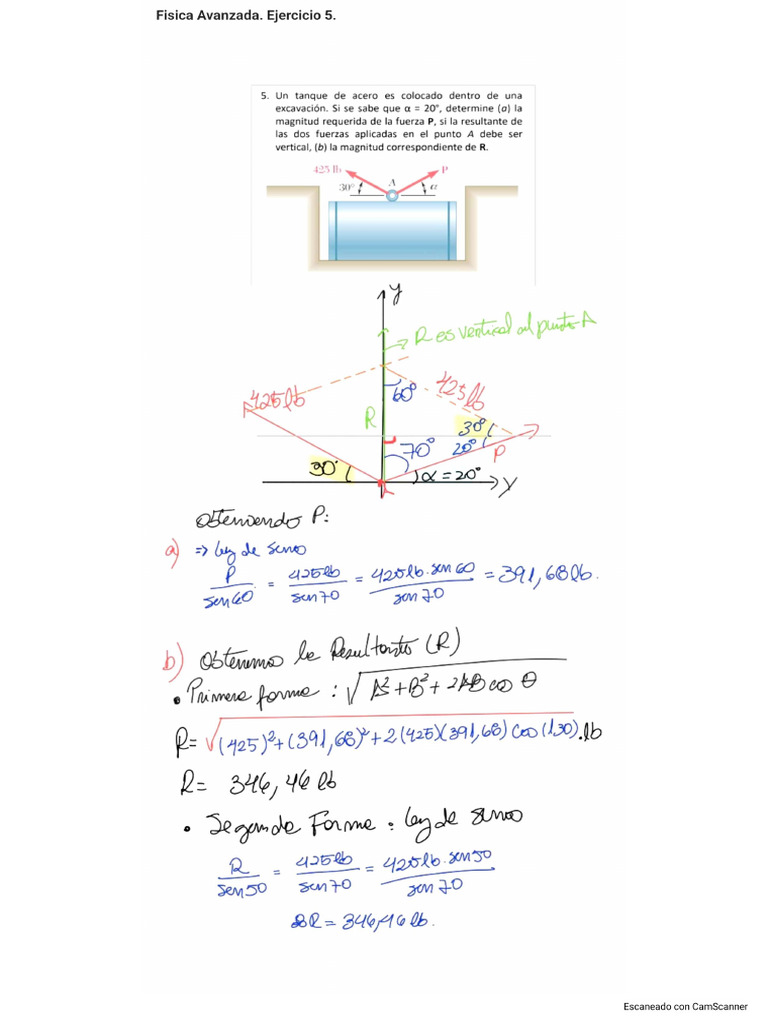 Fisica Avanzada. Ejercicio 5.
5. Un tanque de acero es colocado dentro de una
excavación. Si se sabe que α = 20°, determine (a) la
magnitud requerida de la fuerza P, si la resultante de
las dos fuerzas aplicadas en el punto A debe ser
vertical, (b) la magnitud correspondiente de R.
425 lb
P
A
30°
α
y
R es vertical al punto A
425 lb
60°
425 lb
R
30°
70°
20°
P
30°
α = 20°
y
Obteniendo P:
a) => Ley de senos
P/sen60 = 425lb/sen70 = 425lb.sen60/sen70 = 391,68lb.
b) Obtenemos la Resultante (R)
• Primera forma : √A²+B²+2AB cos θ
R= √(425)²+(391,68)²+2(425)(391,68)cos(130).lb
R= 346,46 lb
• Segunda Forma : Ley de senos
R/sen50 = 425lb/sen70 = 425lb.sen50/sen70
R = 346,46 lb.
Escaneado con CamScanner